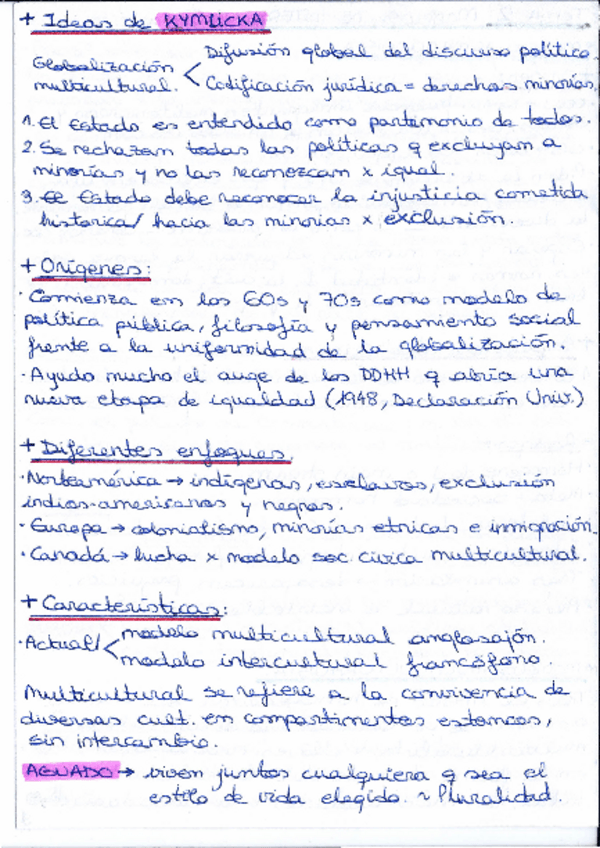 + Ideas de KYMLICKA
Globalización multicultural. < Difusión global del discurso político.
Codificación jurídica = derechos minorías.
1. El Estado es entendido como patrimonio de todos.
2. Se rechazan todas las políticas q excluyan a
minorías y no las reconozcan x igual.
3. El Estado debe reconocer la injusticia cometida
historica/ hacia las minorias x exclusión.
+ Orígenes:
· Comienza en los 60s y 70s como modelo de
política pública, filosofía y pensamiento social
frente a la uniformidad de la globalización.
· Ayudo mucho el auge de los DDHH q abría una
nueva etapa de igualdad (1948, Declaración Univ.)
+ Diferentes enfoques.
· Norteamérica → indígenas, esclavos, exclusión
indios-americanos y negros.
· Europa → colonialismo, minorías etnicas e inmigración.
· Canadá → lucha x modelo soc. civica multicultural.
+ Características:
· Actual/ < modelo multicultural anglosajón.
modelo intercultural francófono
Multicultural se refiere a la convivencia de
diversas cult. en compartimentos estancos,
sin intercambio.
AGUADO → viven juntos cualquiera q sea el
estilo de vida elegido. ~ Pluralidad.